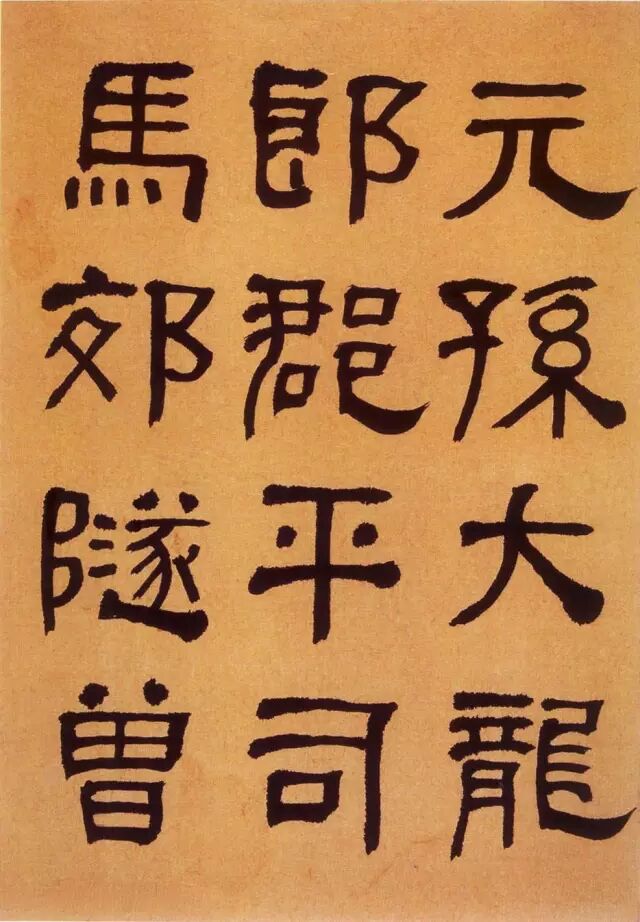 元孫大龍
郎郡平司
馬郊隧曾